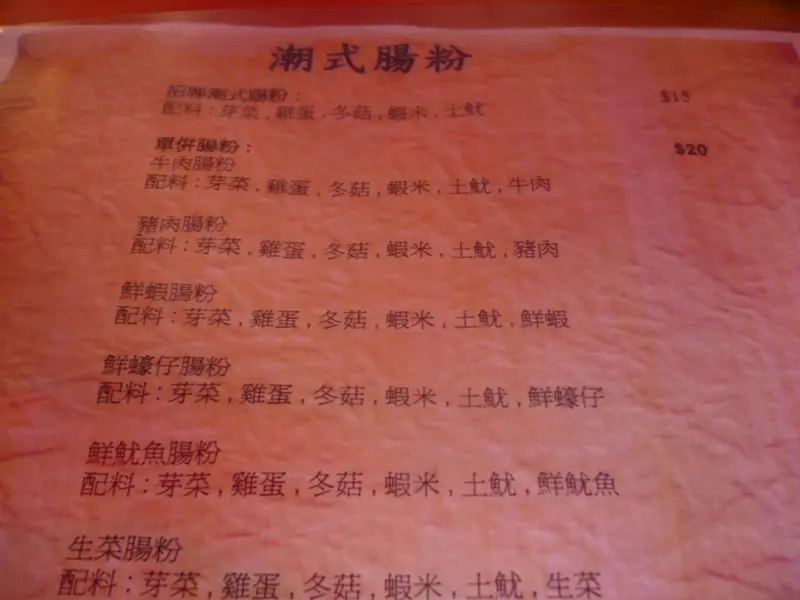 潮式腸粉
招牌潮式腸粉： $15
配料：芽菜，雞蛋，冬菇，蝦米，土魷
單併腸粉： $20
牛肉腸粉
配料：芽菜，雞蛋，冬菇，蝦米，土魷，牛肉
豬肉腸粉
配料：芽菜，雞蛋，冬菇，蝦米，土魷，豬肉
鮮蝦腸粉
配料：芽菜，雞蛋，冬菇，蝦米，土魷，鮮蝦
鮮蠔仔腸粉
配料：芽菜，雞蛋，冬菇，蝦米，土魷，鮮蠔仔
鮮魷魚腸粉
配料：芽菜，雞蛋，冬菇，蝦米，土魷，鮮魷魚
生菜腸粉
配料：芽菜，雞蛋，冬菇，蝦米，土魷，生菜